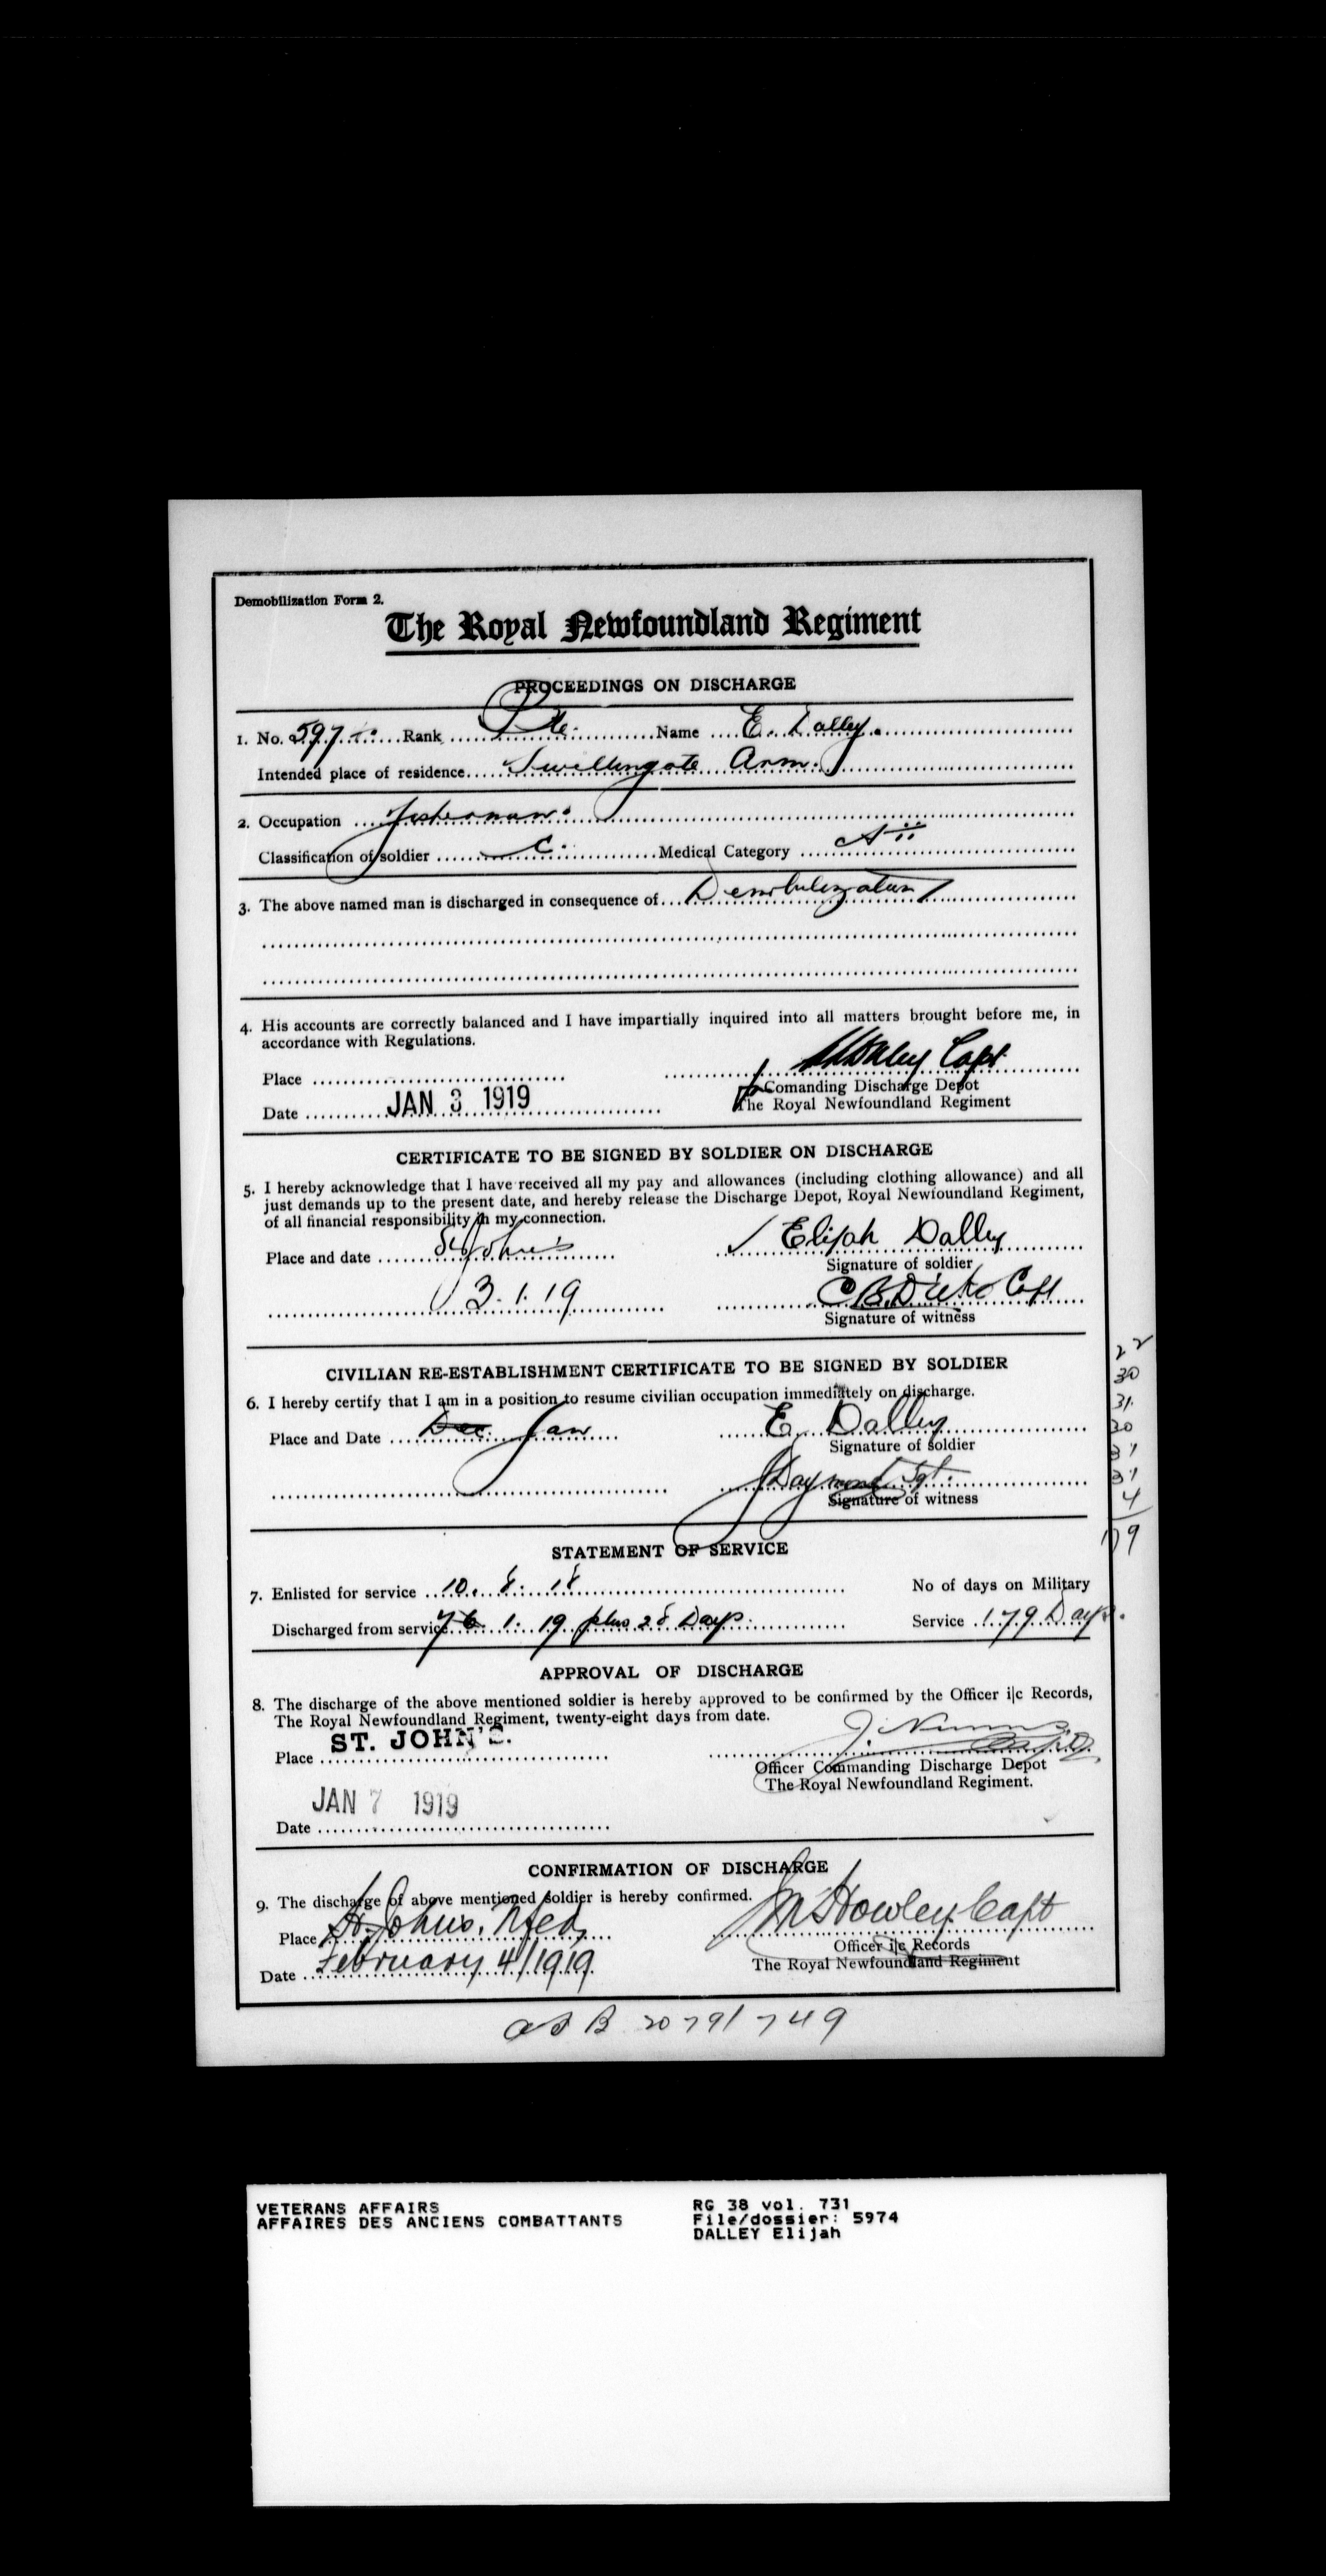 Demobilization Form 2.
The Royal Newfoundland Regiment
PROCEEDINGS ON DISCHARGE
1. No. 597 Rank Pte. Name E. Dalley.
Intended place of residence Swellengate Arm.
2. Occupation Fisherman.
Classification of soldier C. Medical Category A ii
3. The above named man is discharged in consequence of Demobilization
4. His accounts are correctly balanced and I have impartially inquired into all matters brought before me, in
accordance with Regulations.
Capt
Place
for Comanding Discharge Depot
Date JAN 3 1919 The Royal Newfoundland Regiment
CERTIFICATE TO BE SIGNED BY SOLDIER ON DISCHARGE
5. I hereby acknowledge that I have received all my pay and allowances (including clothing allowance) and all
just demands up to the present date, and hereby release the Discharge Depot, Royal Newfoundland Regiment,
of all financial responsibility in my connection.
Place and date St John's Elijah Dalley
Signature of soldier
3.1.19 C.B. Dicks Capt
Signature of witness
CIVILIAN RE-ESTABLISHMENT CERTIFICATE TO BE SIGNED BY SOLDIER
6. I hereby certify that I am in a position to resume civilian occupation immediately on discharge.
Place and Date Dec Jan E. Dalley
Signature of soldier
Sgt.
Signature of witness
22
30
31
30
31
31
4
179
STATEMENT OF SERVICE
7. Enlisted for service 10. 8. 18 No of days on Military
Discharged from service 7 6. 1. 19 plus 28 Days. Service 179 Days.
APPROVAL OF DISCHARGE
8. The discharge of the above mentioned soldier is hereby approved to be confirmed by the Officer i|c Records,
The Royal Newfoundland Regiment, twenty-eight days from date.
Place ST. JOHN'S.
Officer Commanding Discharge Depot
The Royal Newfoundland Regiment.
JAN 7 1919
Date
CONFIRMATION OF DISCHARGE
9. The discharge of above mentioned soldier is hereby confirmed.
Place St. Johns. Nfld, Howley. Capt
Officer i|c Records
Date February 4/1919 The Royal Newfoundland Regiment
2079/749
VETERANS AFFAIRS
AFFAIRES DES ANCIENS COMBATTANTS
RG 38 vol. 731
File/dossier: 5974
DALLEY Elijah